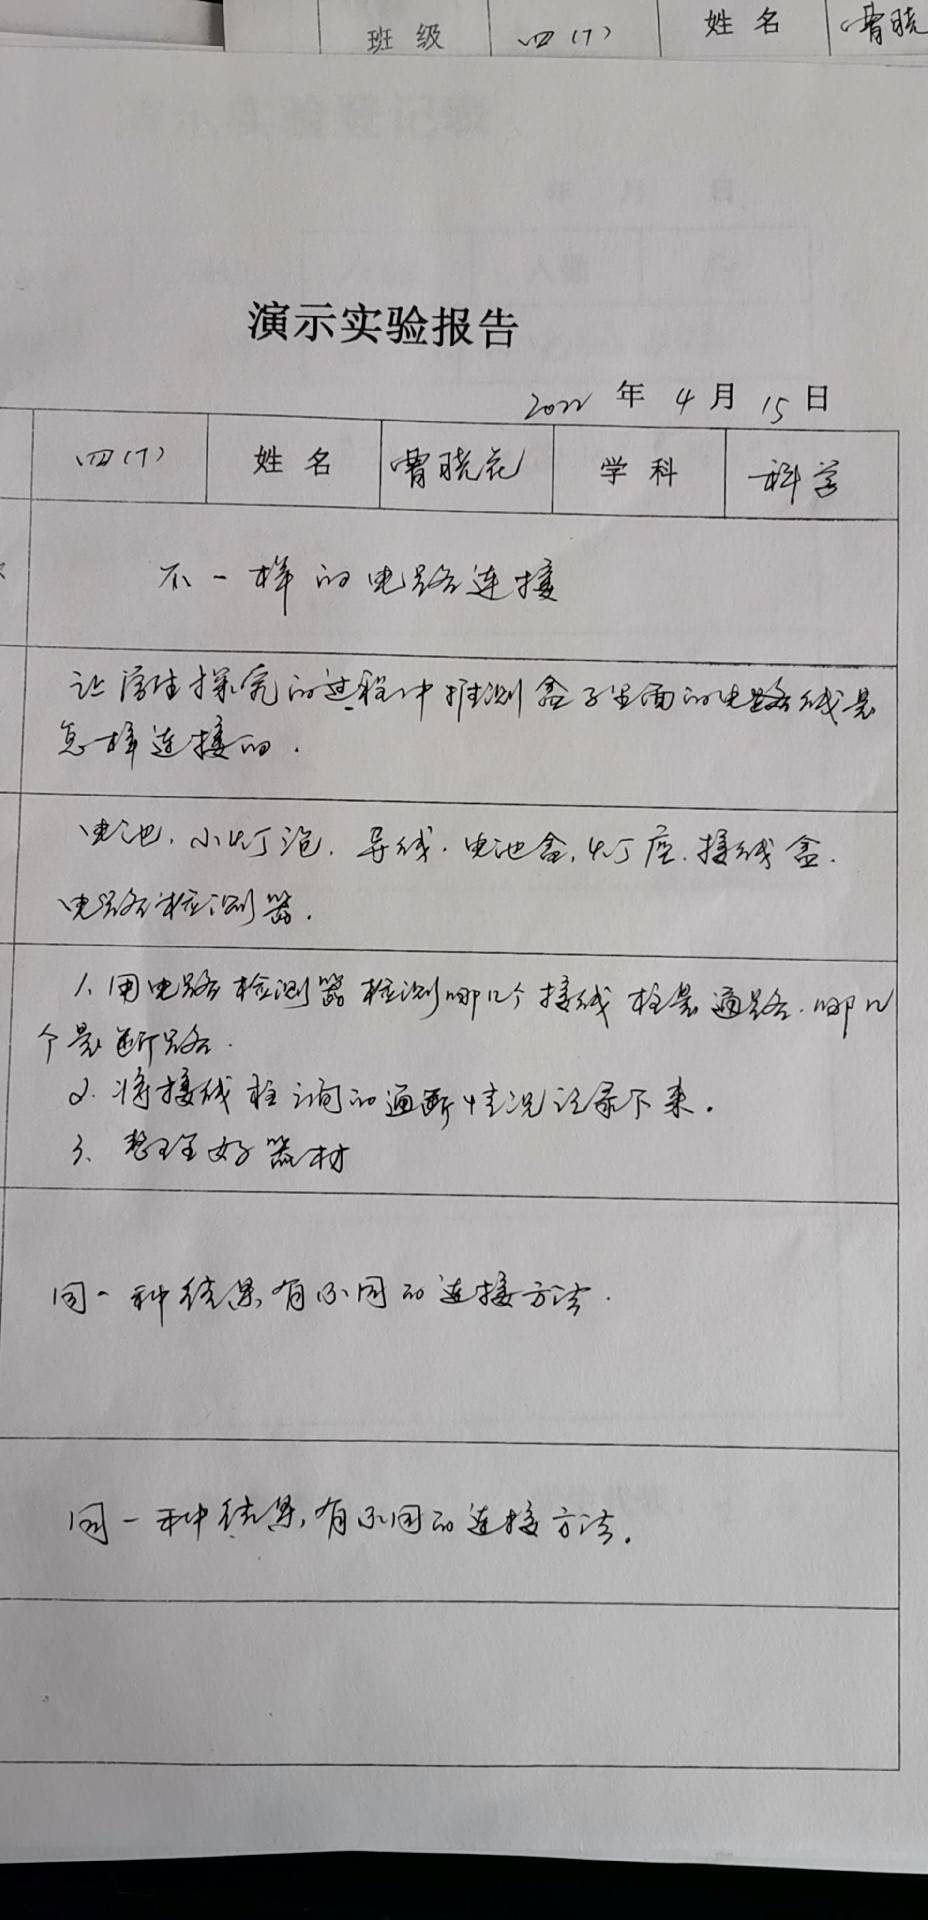 班级 四(7) 姓名 曾晓
演示实验报告
2022 年 4 月 15 日
四(7) 姓名 曾晓花 学科 科学
不一样的电路连接
让学生探究的过程中推测盒子里面的电路线是
怎样连接的.
电池.小灯泡.导线.电池盒,灯座.接线盒.
电路检测器.
1.用电路检测器检测哪几个接线柱是通路.哪几
个是断路.
2.将接线柱之间的通断情况记录下来.
3、整理好器材
同一种结果,有不同的连接方法.
同一种结果,有不同的连接方法.